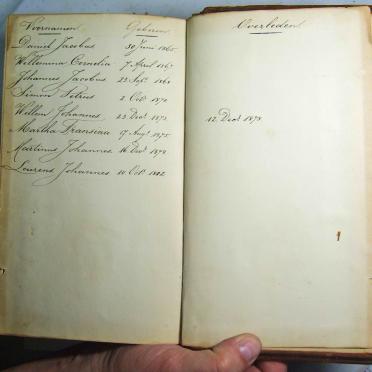 Voornamen Geboren Overleden
Daniel Jacobus 30 Juni 1865
Willemina Cornelia 7 April 1867
Johannes Jacobus 23 Sept 1868
Simon Petrus 2 Oct 1870
Willem Johannes 23 Dec 1872 12 Dec 1878
Martha Fransina 17 Aug 1875
Martinus Johannes 16 Dec 1878
Lourens Johannes 14 Oct 1882